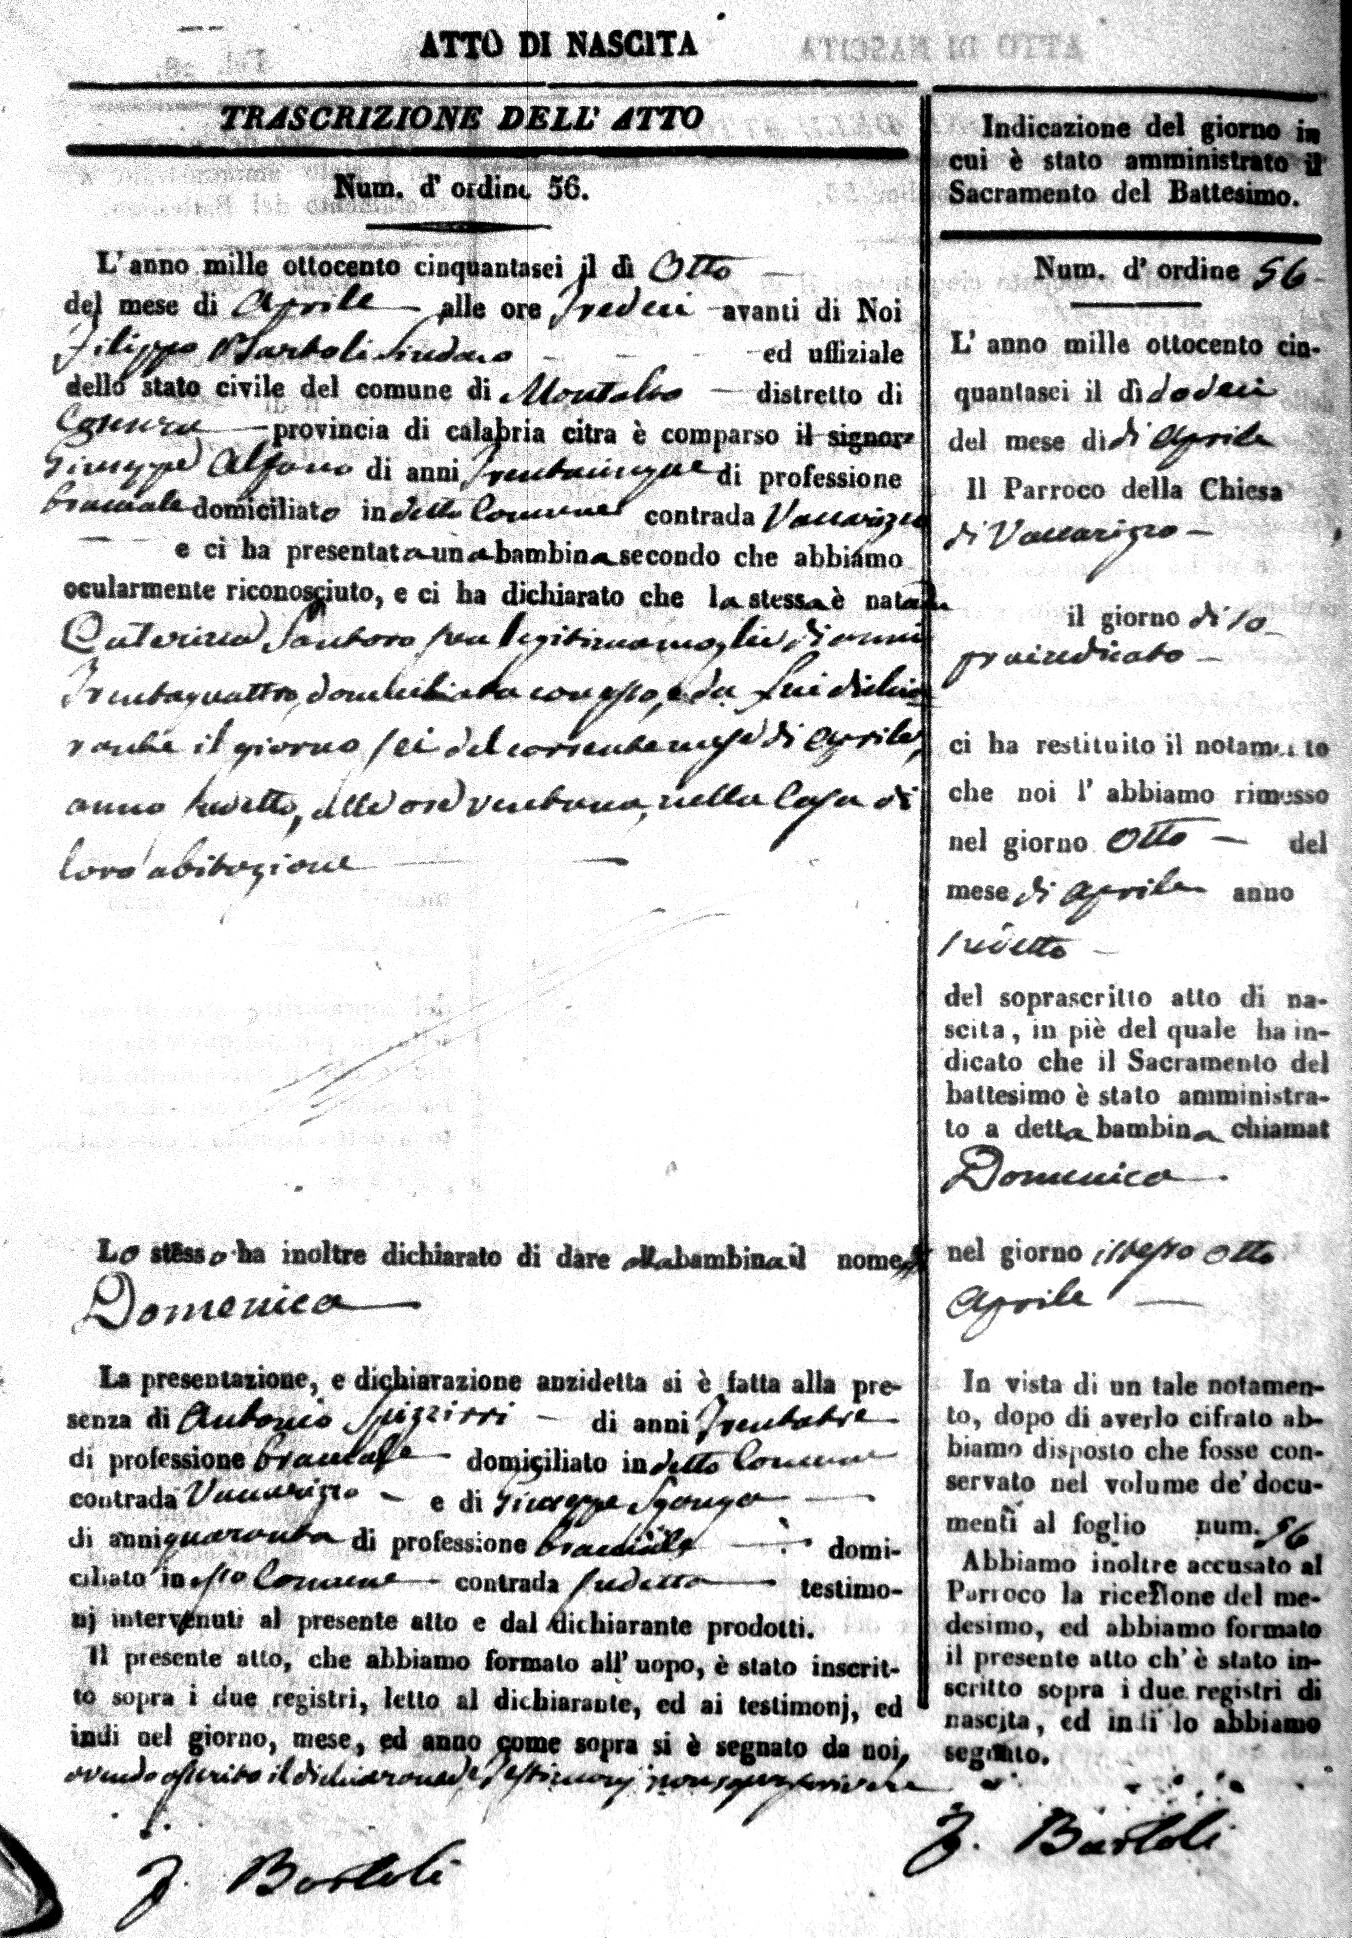 ATTO DI NASCITA
TRASCRIZIONE DELL' ATTO
Num. d' ordine 56.
L' anno mille ottocento cinquantasei il dì Otto
del mese di Aprile alle ore Tredici avanti di Noi
Filippo Bartoli Sindaco ed uffiziale
dello stato civile del comune di Montalto distretto di
Cosenza provincia di calabria citra è comparso il signor
Giuseppe Alfano di anni Trentacinque di professione
bracciale domiciliato in detto Comune contrada Vaccarizzo
e ci ha presentata una bambina secondo che abbiamo
ocularmente riconosciuto, e ci ha dichiarato che la stessa è nata da
Caterina Santoro sua legitima moglie di anni
Trentaquattro, domiciliata con esso, e da lui dichia
rante il giorno sei del corrente mese di Aprile,
anno sudetto, alle ore ventuna, nella Casa di
loro abitazione
Lo stesso ha inoltre dichiarato di dare alla bambina il nome
Domenica
La presentazione, e dichiarazione anzidetta si è fatta alla pre-
senza di Antonio Spizzirri di anni Trentatre
di professione bracciale domiciliato in detto Comune
contrada Vaccarizzo e di Giuseppe
di anni quaranta di professione bracciale domi-
ciliato in esso Comune contrada sudetta testimo-
nj intervenuti al presente atto e dal dichiarante prodotti.
Il presente atto, che abbiamo formato all' uopo, è stato inscrit-
to sopra i due registri, letto al dichiarante, ed ai testimonj, ed
indi nel giorno, mese, ed anno come sopra si è segnato da noi,
avendo asserito il dichiarante e Testimonj non saper scrivere
F. Bartoli
Indicazione del giorno in
cui è stato amministrato il
Sacramento del Battesimo.
Num. d' ordine 56
L' anno mille ottocento cin-
quantasei il dì dodeci
del mese di di Aprile
Il Parroco della Chiesa
di Vaccarizzo
il giorno di so
praindicato
ci ha restituito il notamento
che noi l' abbiamo rimesso
nel giorno Otto del
mese di Aprile anno
sudetto
del soprascritto atto di na-
scita, in piè del quale ha in-
dicato che il Sacramento del
battesimo è stato amministra-
to a detta bambina chiamat
Domenica
nel giorno istesso otto
Aprile
In vista di un tale notamen-
to, dopo di averlo cifrato ab-
biamo disposto che fosse con-
servato nel volume de' docu-
menti al foglio num. 56
Abbiamo inoltre accusato al
Parroco la ricezione del me-
desimo, ed abbiamo formato
il presente atto ch' è stato in-
scritto sopra i due registri di
nascita, ed indi lo abbiamo
segnato.
F. Bartoli